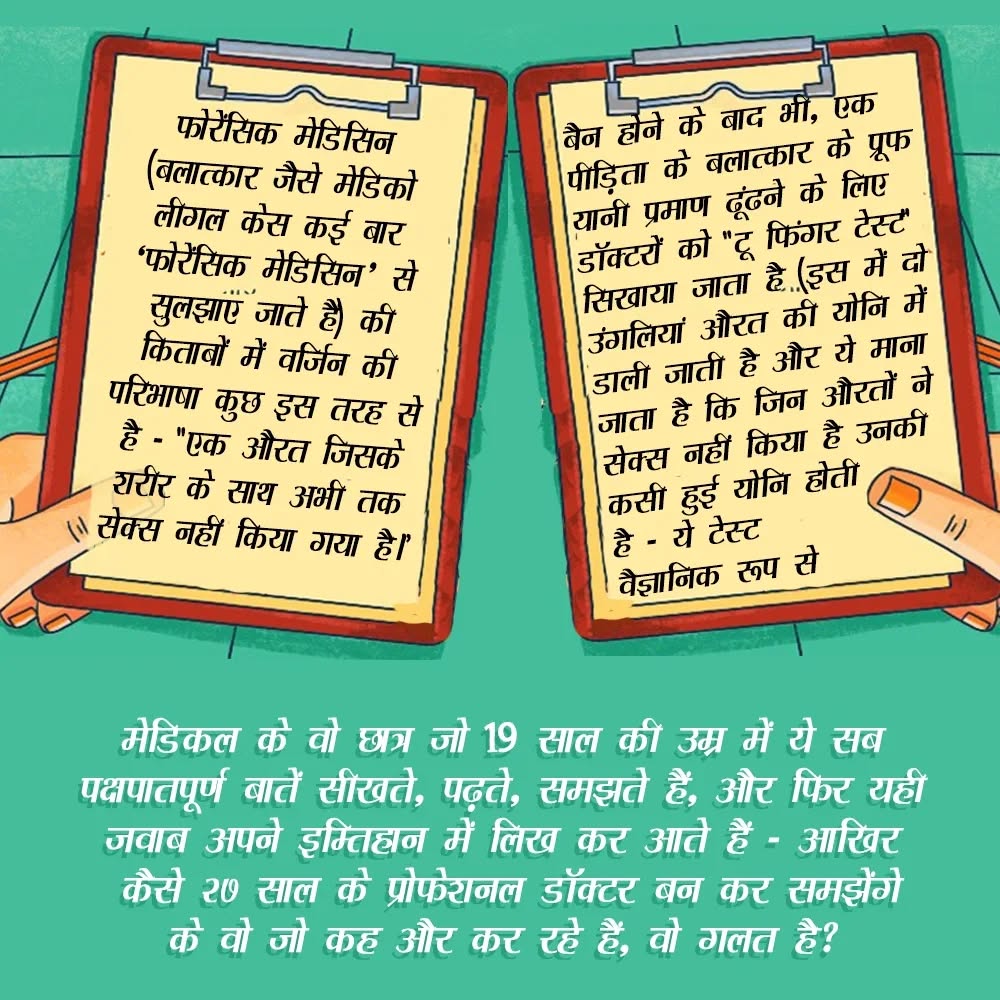 फोरेंसिक मेडिसिन
(बलात्कार जैसे मेडिको
लीगल केस कई बार
‘फोरेंसिक मेडिसिन’ से
सुलझाएं जाते हैं) की
किताबों में वर्जिन की
परिभाषा कुछ इस तरह से
है - "एक औरत जिसके
शरीर के साथ अभी तक
सेक्स नहीं किया गया है।"
बैन होने के बाद भी, एक
पीड़िता के बलात्कार के प्रूफ
यानी प्रमाण ढूंढने के लिए
डॉक्टरों को "टू फिंगर टेस्ट"
सिखाया जाता है (इस में दो
उंगलियां औरत की योनि में
डाली जाती है और ये माना
जाता है कि जिन औरतों ने
सेक्स नहीं किया है उनकी
कसी हुई योनि होती
है - ये टेस्ट
वैज्ञानिक रूप से
मेडिकल के वो छात्र जो 19 साल की उम्र में ये सब
पक्षपातपूर्ण बातें सीखते, पढ़ते, समझते हैं, और फिर यही
जवाब अपने इम्तिहान में लिख कर आते हैं - आखिर
कैसे २७ साल के प्रोफेशनल डॉक्टर बन कर समझेंगे
के वो जो कह और कर रहे हैं, वो गलत है?